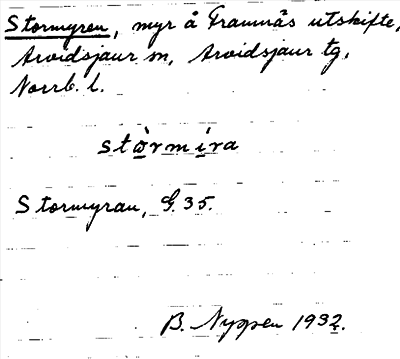 Stormyren, myr å Framnäs utskifte,
Arvidsjaur sn, Arvidsjaur tg,
Norrb. l.
stòrmíra
Stormyran, G.35.
B. Nyppen 1932.